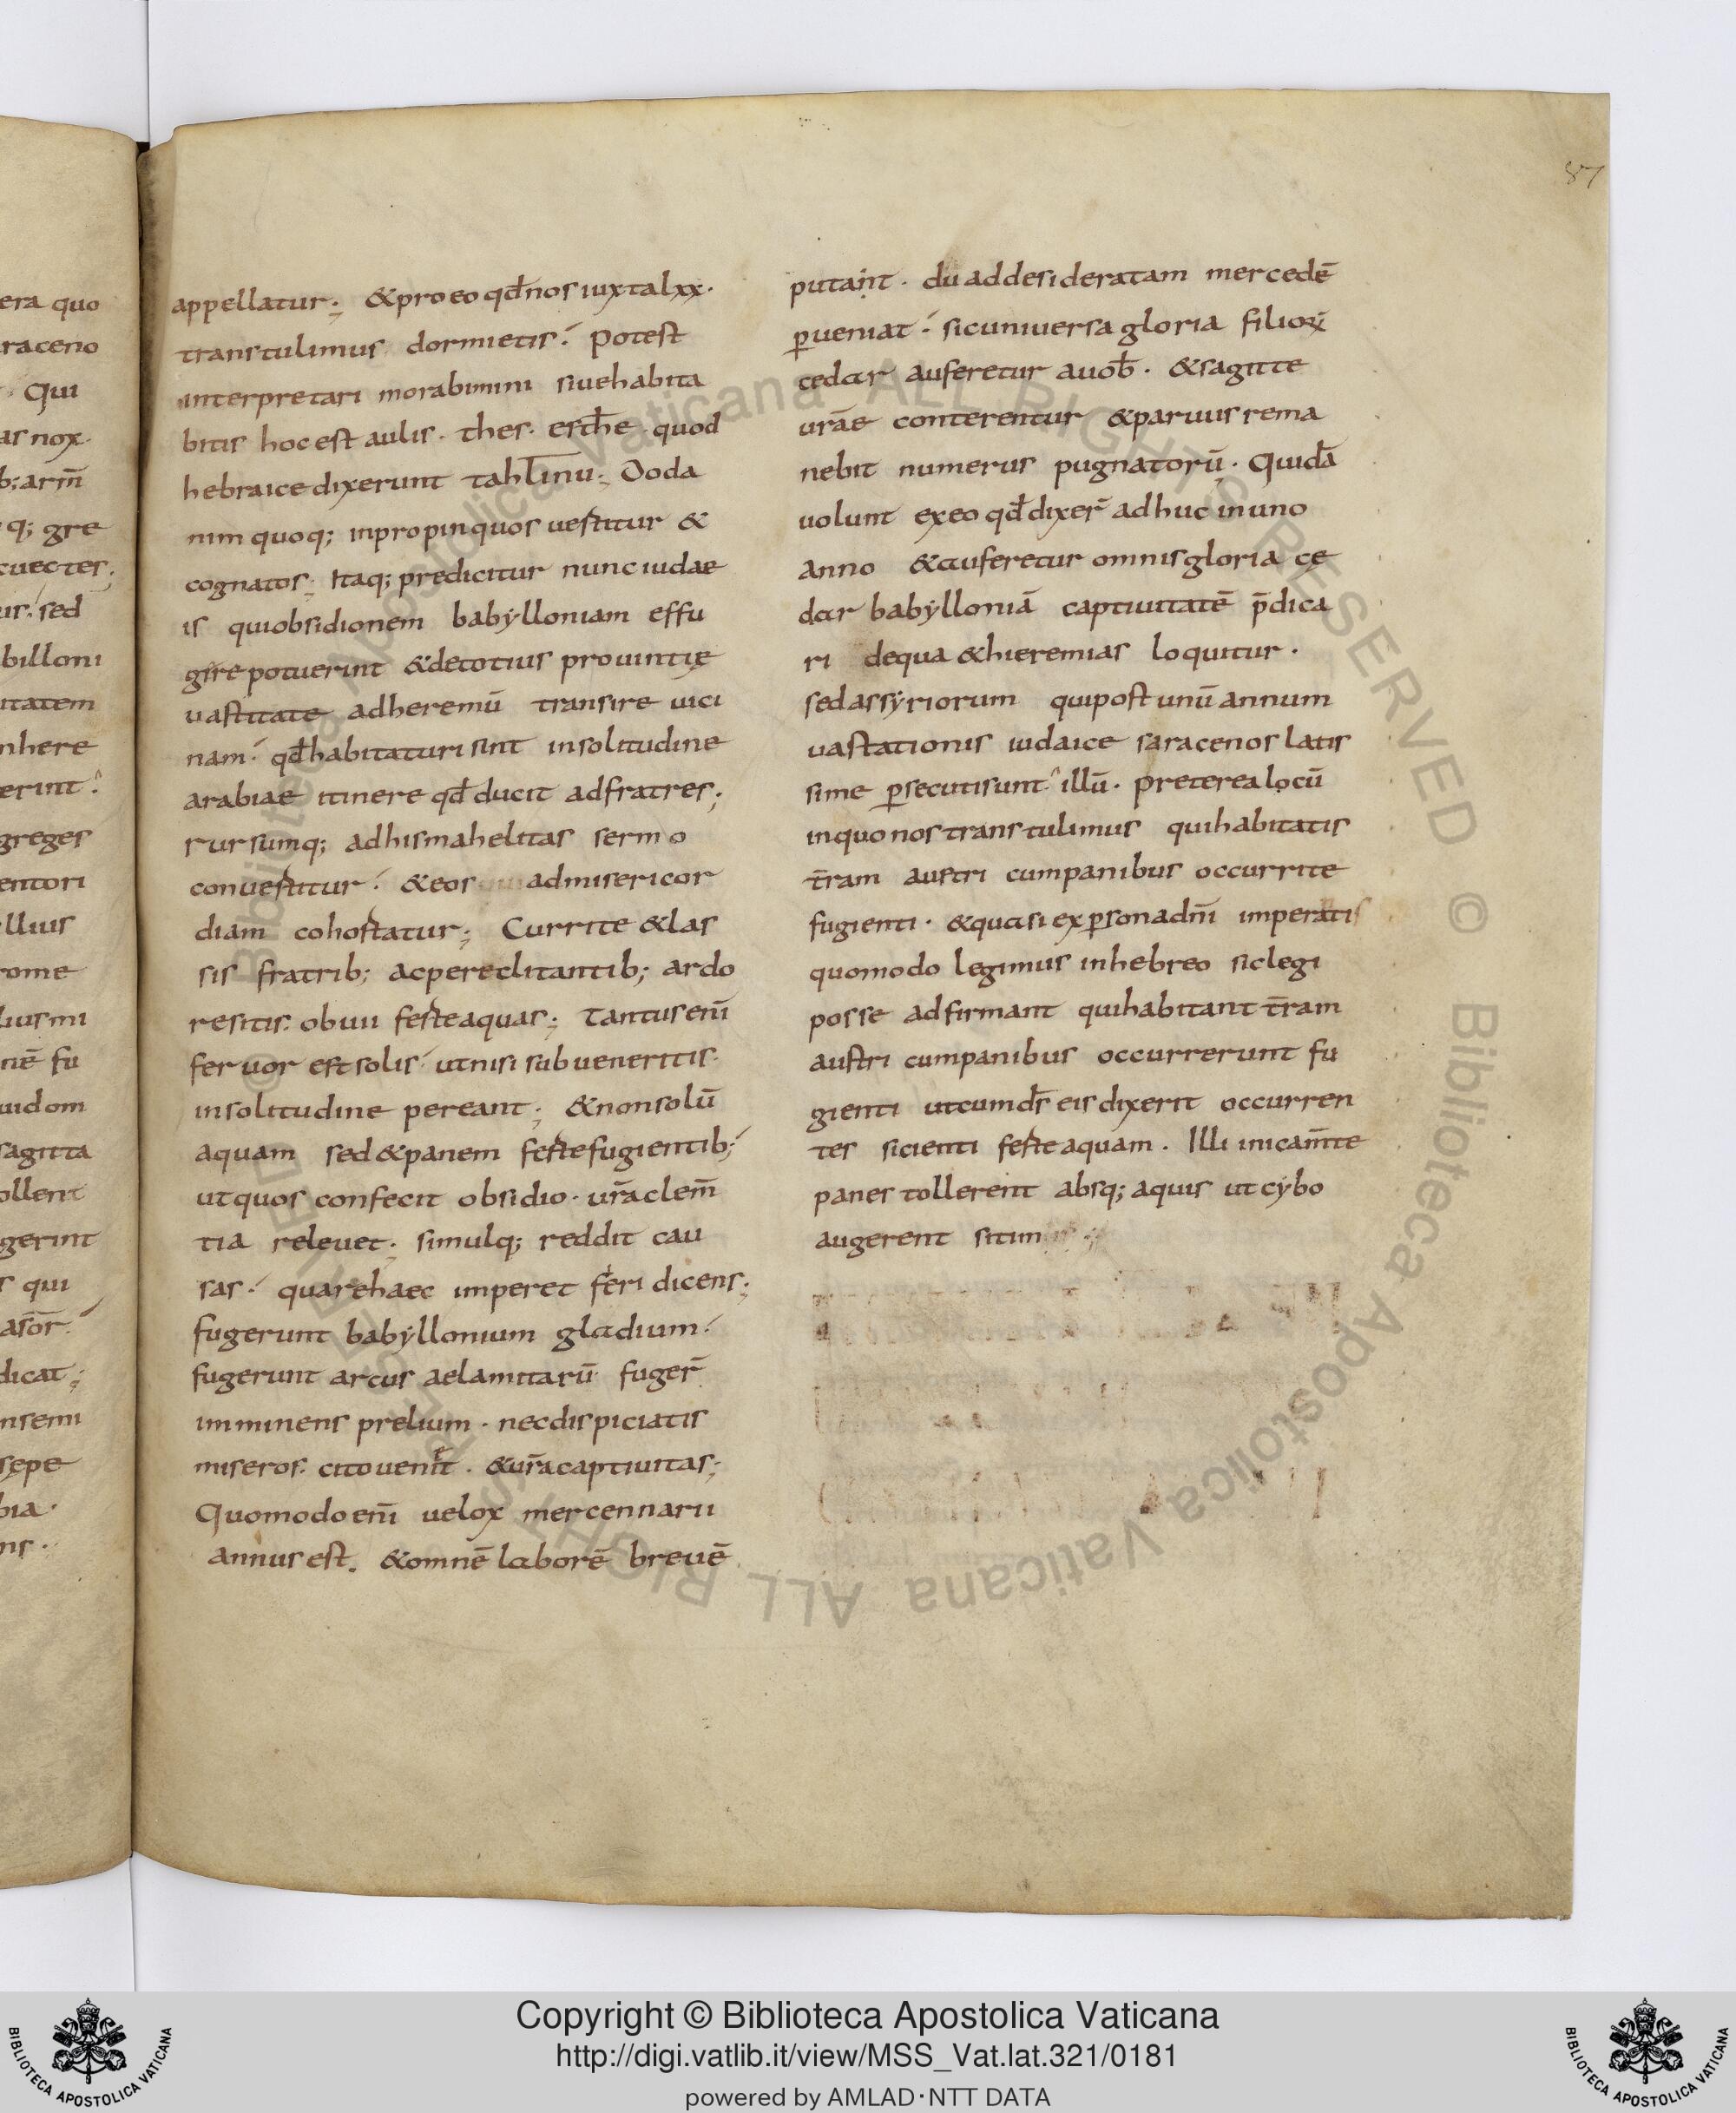 era quo
raceno
Qui
as nox.
b; arm̄
q; gre
cuectes;
us. sed
billoni
itatem
nhere
erint.
greges
entori
llius
rome
liusmi
nē fu
uidom
sagitta
ollent
gerint
s qui
asōr.
dicat;
nsemi
sepe
bia.
ns.
appellatur; & pro eo qđ nos iuxta lxx.
transtulimus dormietis. Potest
interpretari morabimini siue habita
bitis hoc est aulis. thes. esthe quod
hebraice dixerunt tahlinu; Doda
nim quoq; inpropinquos uestitur &
cognatos; Itaq; predicitur nunc iudae
is qui obsidionem babÿlloniam effu
gire potuerint & de totius prouintię
uastitate adheremū transire uici
nam. qđ habitaturi sint insolitudine
arabiae itinere qđ ducit adfratres;
rursumq; adhismahelitas sermo
conuestitur. & eos admisericor
diam cohostatur; Currite & las
sis fratrib; ac pereclitantib; ardo
resitis. obuii feste aquas; Tantus enī
feruor est solis utnisi subueneritis.
insolitudine pereant; & non solū
aquam sed & panem feste fugientib;
ut quos confecit obsidio. ur̄a clem̄
tia releuet. simulq; reddit cau
sas. quare haec imperet feri dicens;
fugerunt babÿllonium gladium.
fugerunt arcus aelamitarū fuger̄
imminens prelium. nec dispiciatis
miseros. cito ueniet. & ur̄a captiuitas;
Quomodo enī uelox mercennarii
annus est. & omnē laborē breuē
putant. dū ad desideratam mercedē
ꝑueniat. sic uniuersa gloria filioꝝ
cedar auferetur a uob̄. & sagitte
ur̄ae conterentur & paruus rema
nebit numerus pugnatorū. Quidā
uolunt ex eo qđ dixer̄ adhuc in uno
anno & auferetur omnis gloria ce
dar babÿlloniā captiuitatē p̄dica
ri de qua & hieremias loquitur.
sed assÿriorum qui post unū annum
uastationis iudaice saracenos latis
sime ꝑsecuti sunt. illū. preterea locū
in quo nos transtulimus qui habitatis
t̄ram austri cum panibus occurrite
fugienti. & quasi ex ꝑsona dn̄i imperatis
quomodo legimus in hebreo sic legi
posse adfirmant qui habitant t̄ram
austri cum panibus occurrerunt fu
gienti ut cum ds̄ eis dixerit occurren
tes sicienti feste aquam. Illi inicam̄te
panes tollerent absq; aquis ut cÿbo
augerent sitim
87
Copyright © Biblioteca Apostolica Vaticana
http://digi.vatlib.it/view/MSS_Vat.lat.321/0181
powered by AMLAD・NTT DATA
BIBLIOTECA APOSTOLICA VATICANA
BIBLIOTECA APOSTOLICA VATICANA